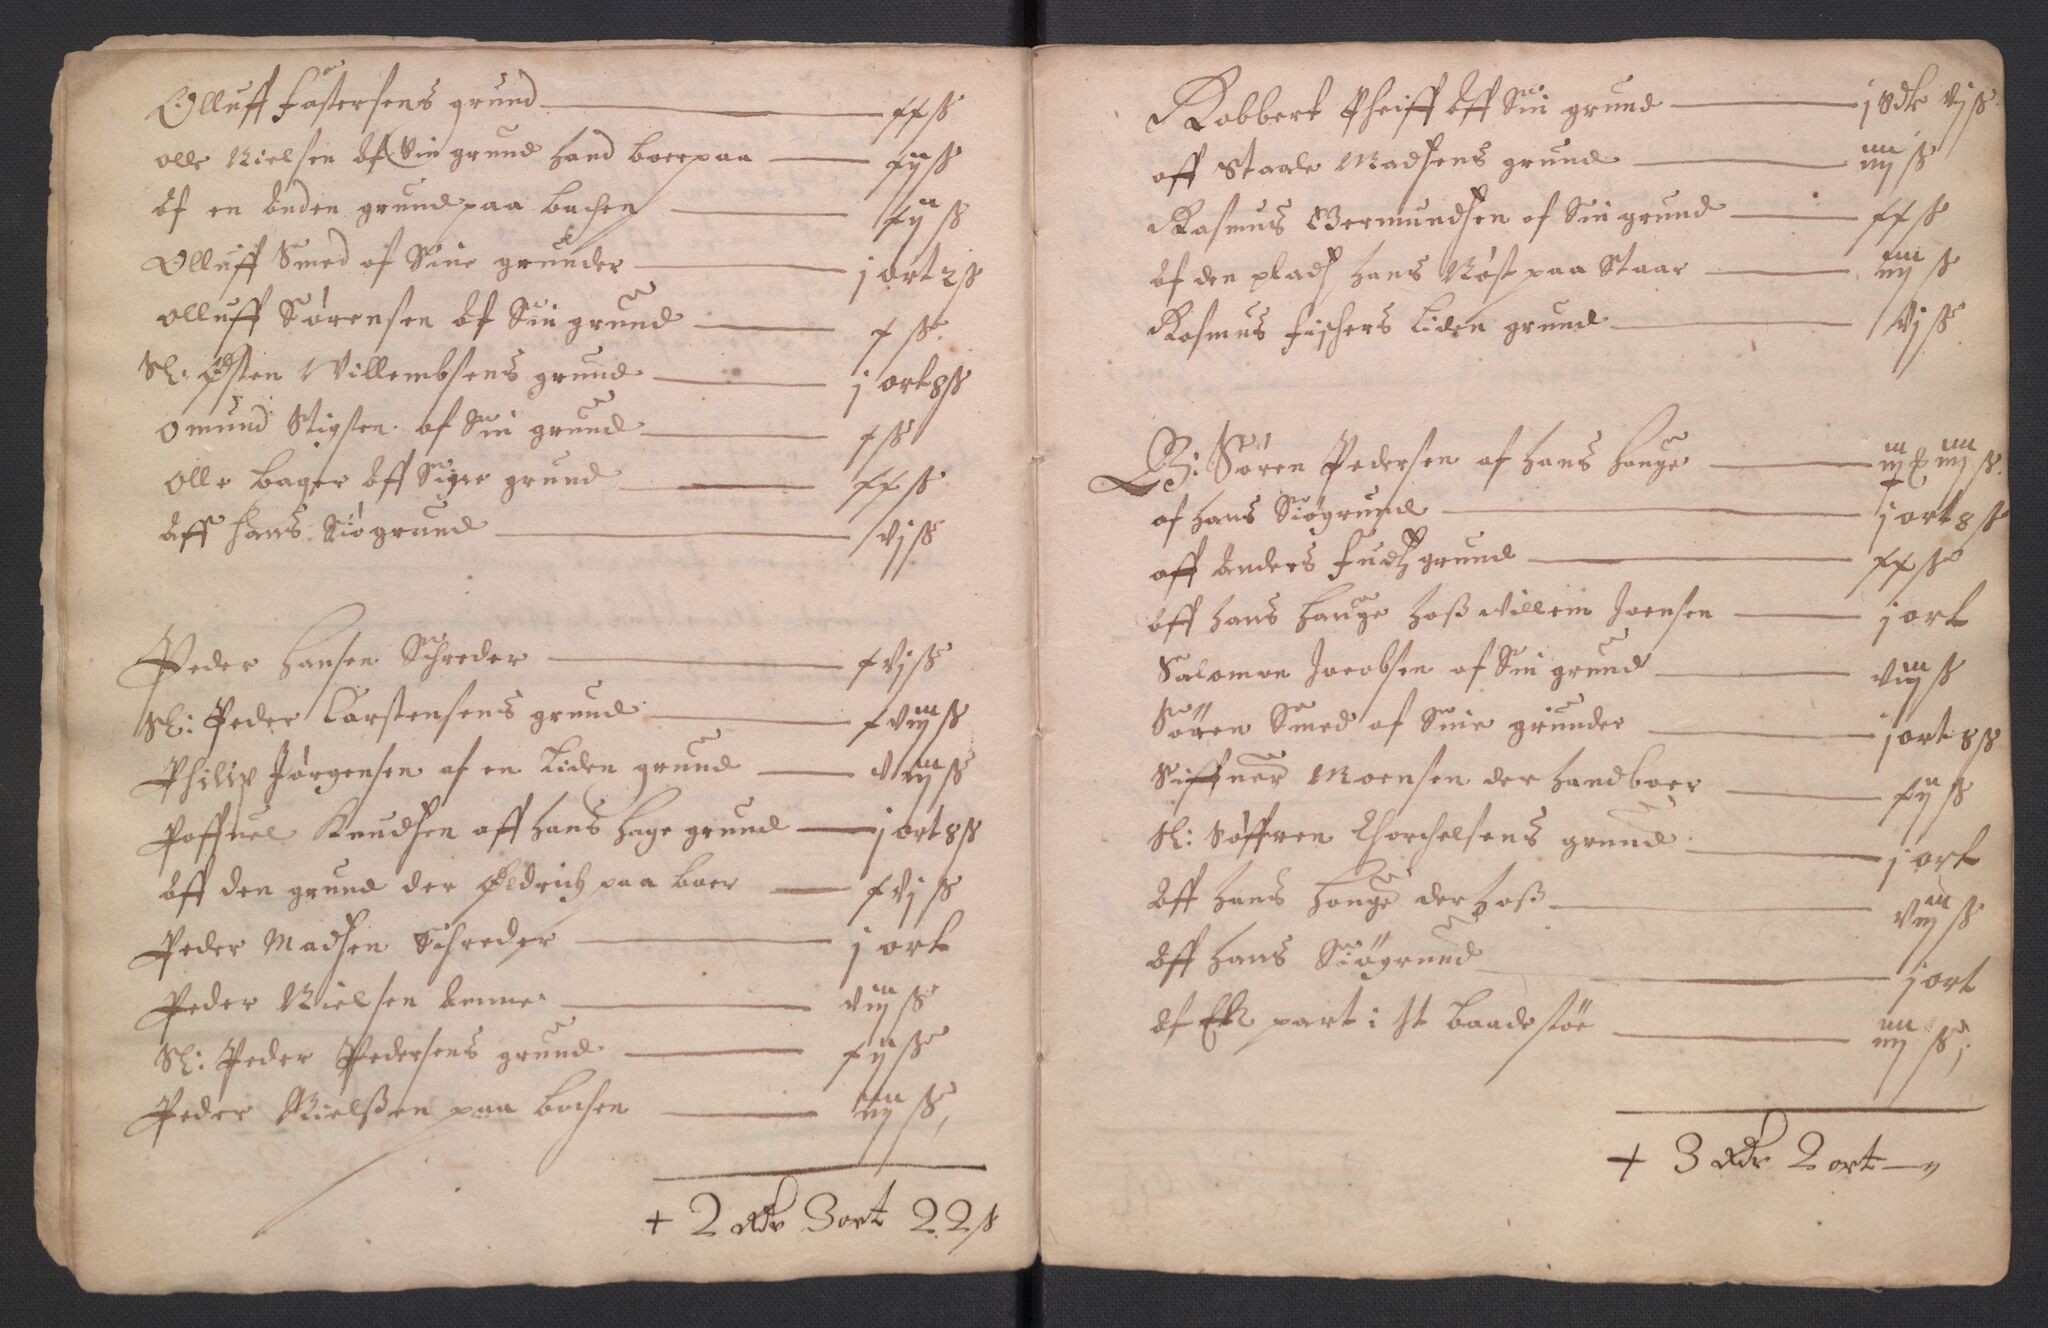 Olluff Fastersens grund — xx ß
Olle Nielsen af Sin grund hand boer paa — xij ß
Af en anden grund paa bachen — xij ß
Olluff Smed af Sine grunder — j ort 2 ß
Olluff Sørensen af Sin grund — x ß
Sl: Østen Willembsens grund — j ort 8 ß
Omund Stigsen af Sin grund — x ß
Olle Bager aff Sigre grund — xx ß
Aff hans Siøgrund — vj ß
Peder Hansen Schreder — xvj ß
Sl: Peder Carstensens grund — xviij ß
Philip Jørgensen af en Liden grund — viij ß
Poffuel Knudsen aff hans hage grund — j ort 8 ß
Aff den grund der Øldrich paa boer — xvj ß
Peder Madsen Schreder — j ort
Peder Nielsen — viij ß
Sl: Peder Pedersens grund — xij ß
Peder Nielsen paa bachen — iiij ß
+ 2 Rdr 3 ort 22 ß
Robbert Pheiff aff Sin grund — j Rdr vj ß
aff Staale Madsens grund — iiij ß
Rasmus Germundsen af Sin grund — xx ß
Af den plads hans Nøst paa Staar — iiij ß
Rasmus Fischers Liden grund — vj ß
Søren Pedersen af hans hauge — iij ß
af hans Siøgrund — j ort 8 ß
aff Anders grund — xx ß
Aff hans hauge hoß Willem Joensen — j ort
Salomon Jacobsen af Sin grund — viij ß
Søren Smed af Sine grunder — j ort 8 ß
Siffuer Moensen der hand boer — xij ß
Sl: Søffren Thorchelsens grund — j ort
Aff hans hauge der hoß — viij ß
Aff hans Siøgrund — j ort
Af part i It baadestøe — iiij ß
+ 3 Rdr 2 ort —